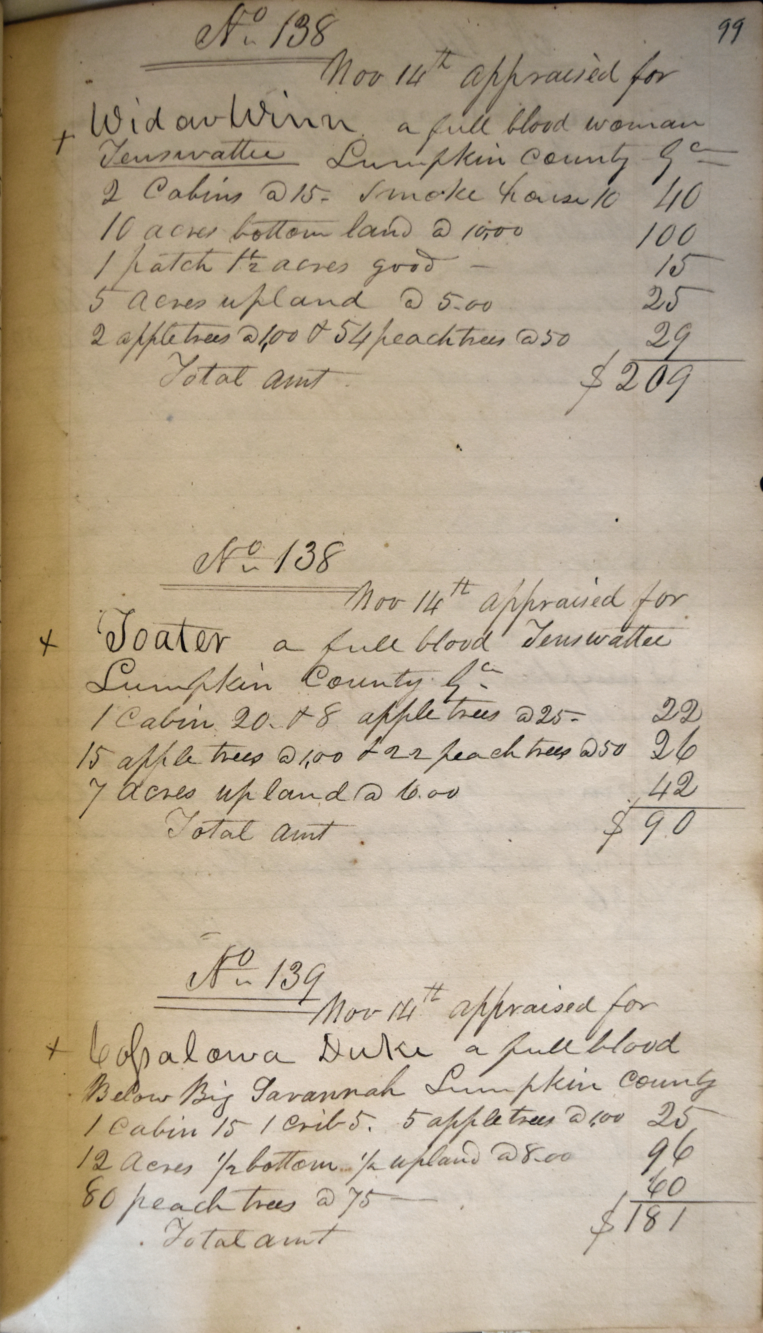 99
No 138
Nov 14th appraised for
+ Widow Winn a full blood woman
Tenswattee Lumpkin County Ga
2 Cabins @ 15- Smoke house 10 40
10 acres bottom land @ 10,00 100
1 patch 1½ acres good - 15
5 acres upland @ 5.00 25
2 apple trees @ 1,00 & 54 peach trees @ 50 29
Total amt $ 209
No 138
Nov 14th appraised for
+ Toater a full blood Tenswattee
Lumpkin County Ga
1 Cabin 20. & 8 apple trees @ 25- 22
15 apple trees @ 1,00 & 22 peach trees @ 50 26
7 acres upland @ 6.00 42
Total amt $ 90
No 139
Nov 14th appraised for
+ Duke a full blood
Below Big Savannah Lumpkin County
1 Cabin 15 1 Crib 5. 5 apple trees @ 1,00 25
12 acres ½ bottom ½ upland @ 8.00 96
80 peach trees @ 75 — 60
Total amt $ 181